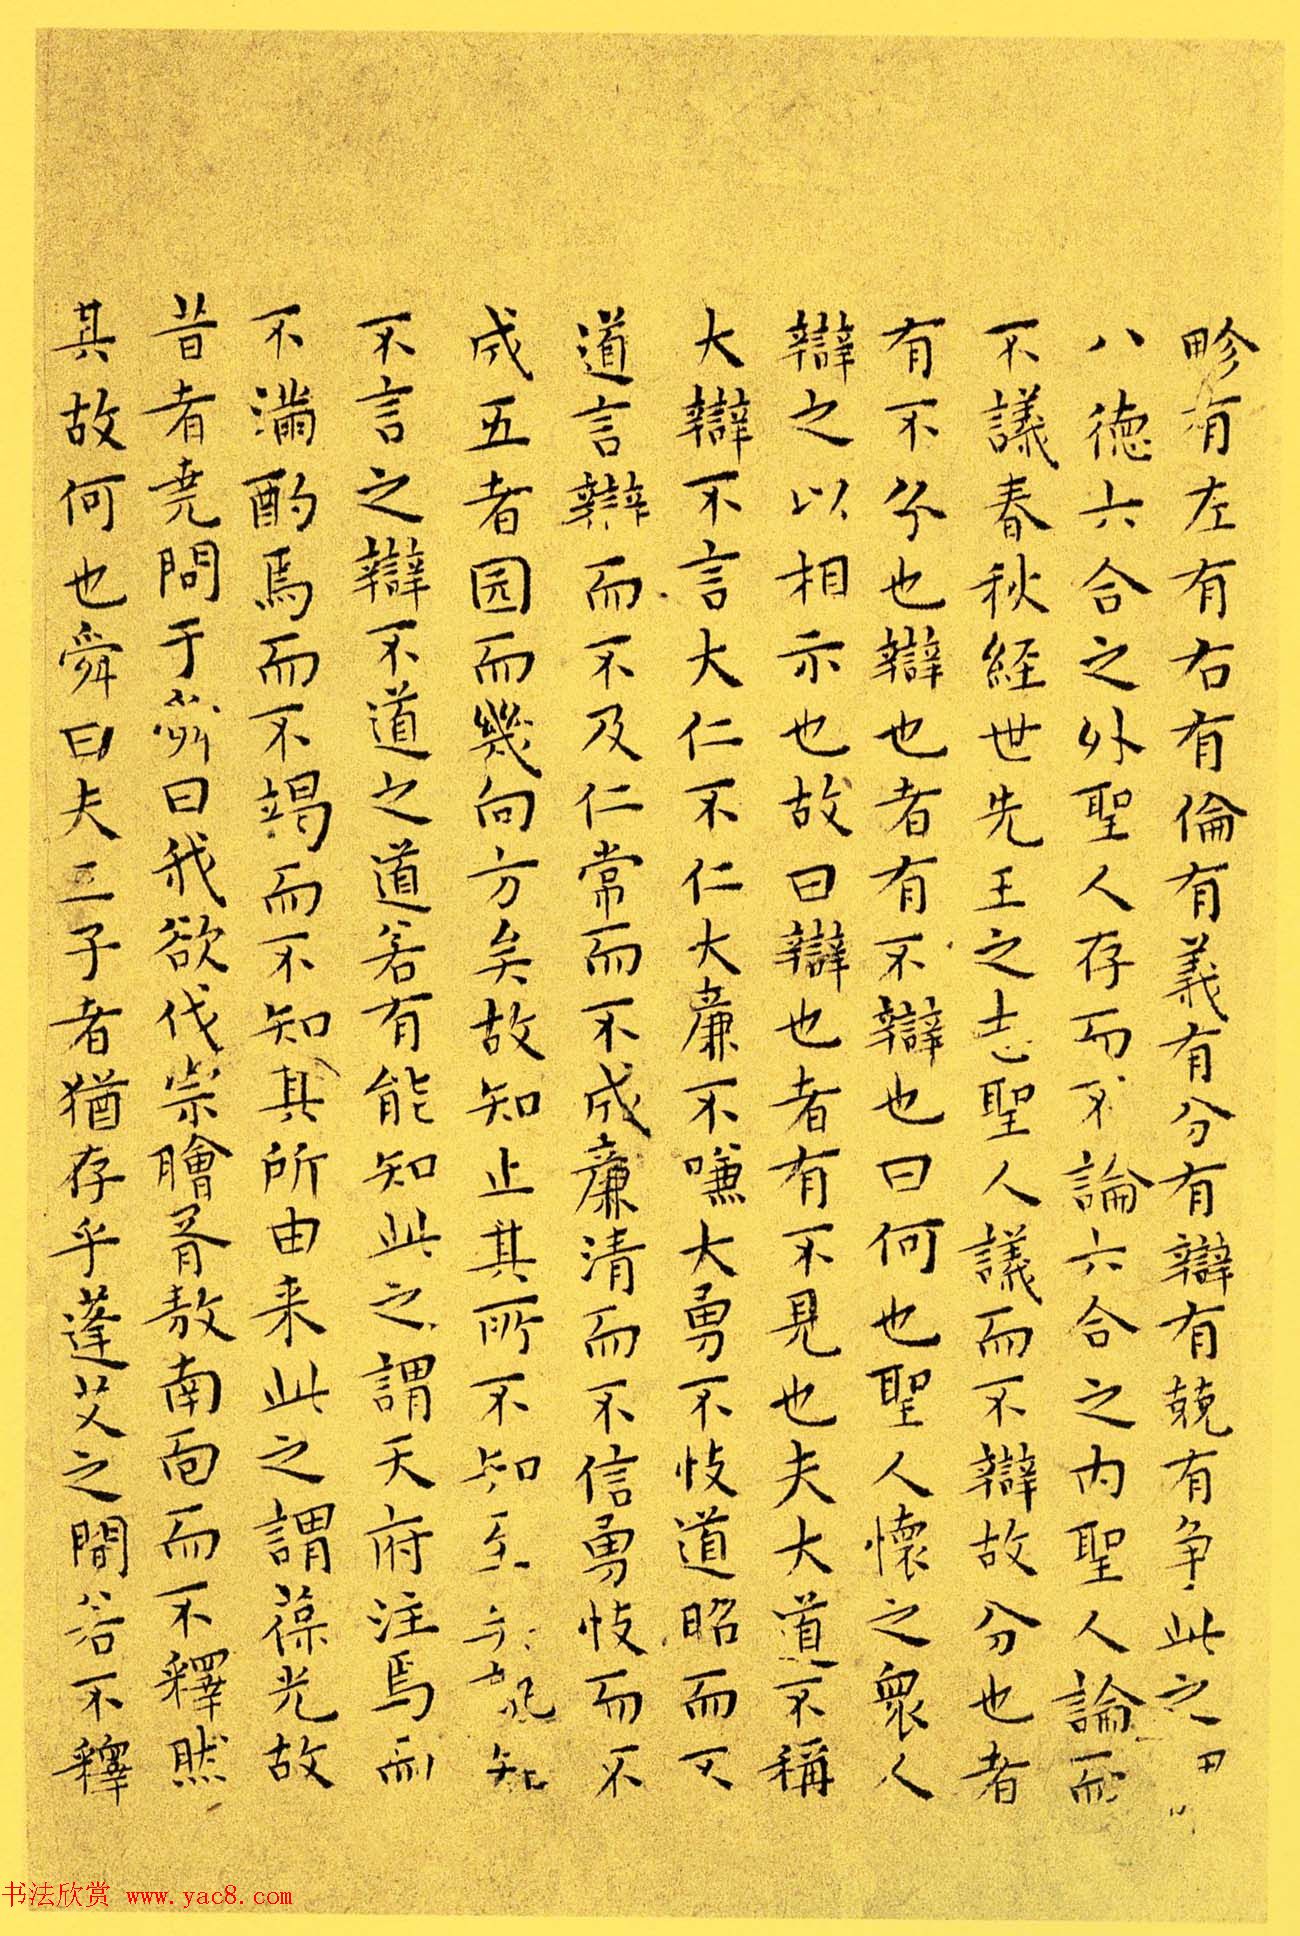 畛有左有右有倫有義有分有辯有競有争此之
八德六合之外聖人存而不論六合之内聖人論而
不議春秋經世先王之志聖人議而不辯故分也者
有不分也辯也者有不辯也曰何也聖人懷之衆人
辯之以相示也故曰辯也者有不見也夫大道不稱
大辯不言大仁不仁大廉不嗛大勇不忮道昭而不
道言辯而不及仁常而不成廉清而不信勇忮而不
成五者园而幾向方矣故知止其所不知至知
不言之辯不道之道若有能知此之謂天府注焉而
不滿酌焉而不竭而不知其所由来此之謂葆光故
昔者堯問于舜曰我欲伐宗膾胥敖南面而不釋然
其故何也舜曰夫三子者猶存乎蓬艾之間若不釋
书法欣赏 www.yac8.com